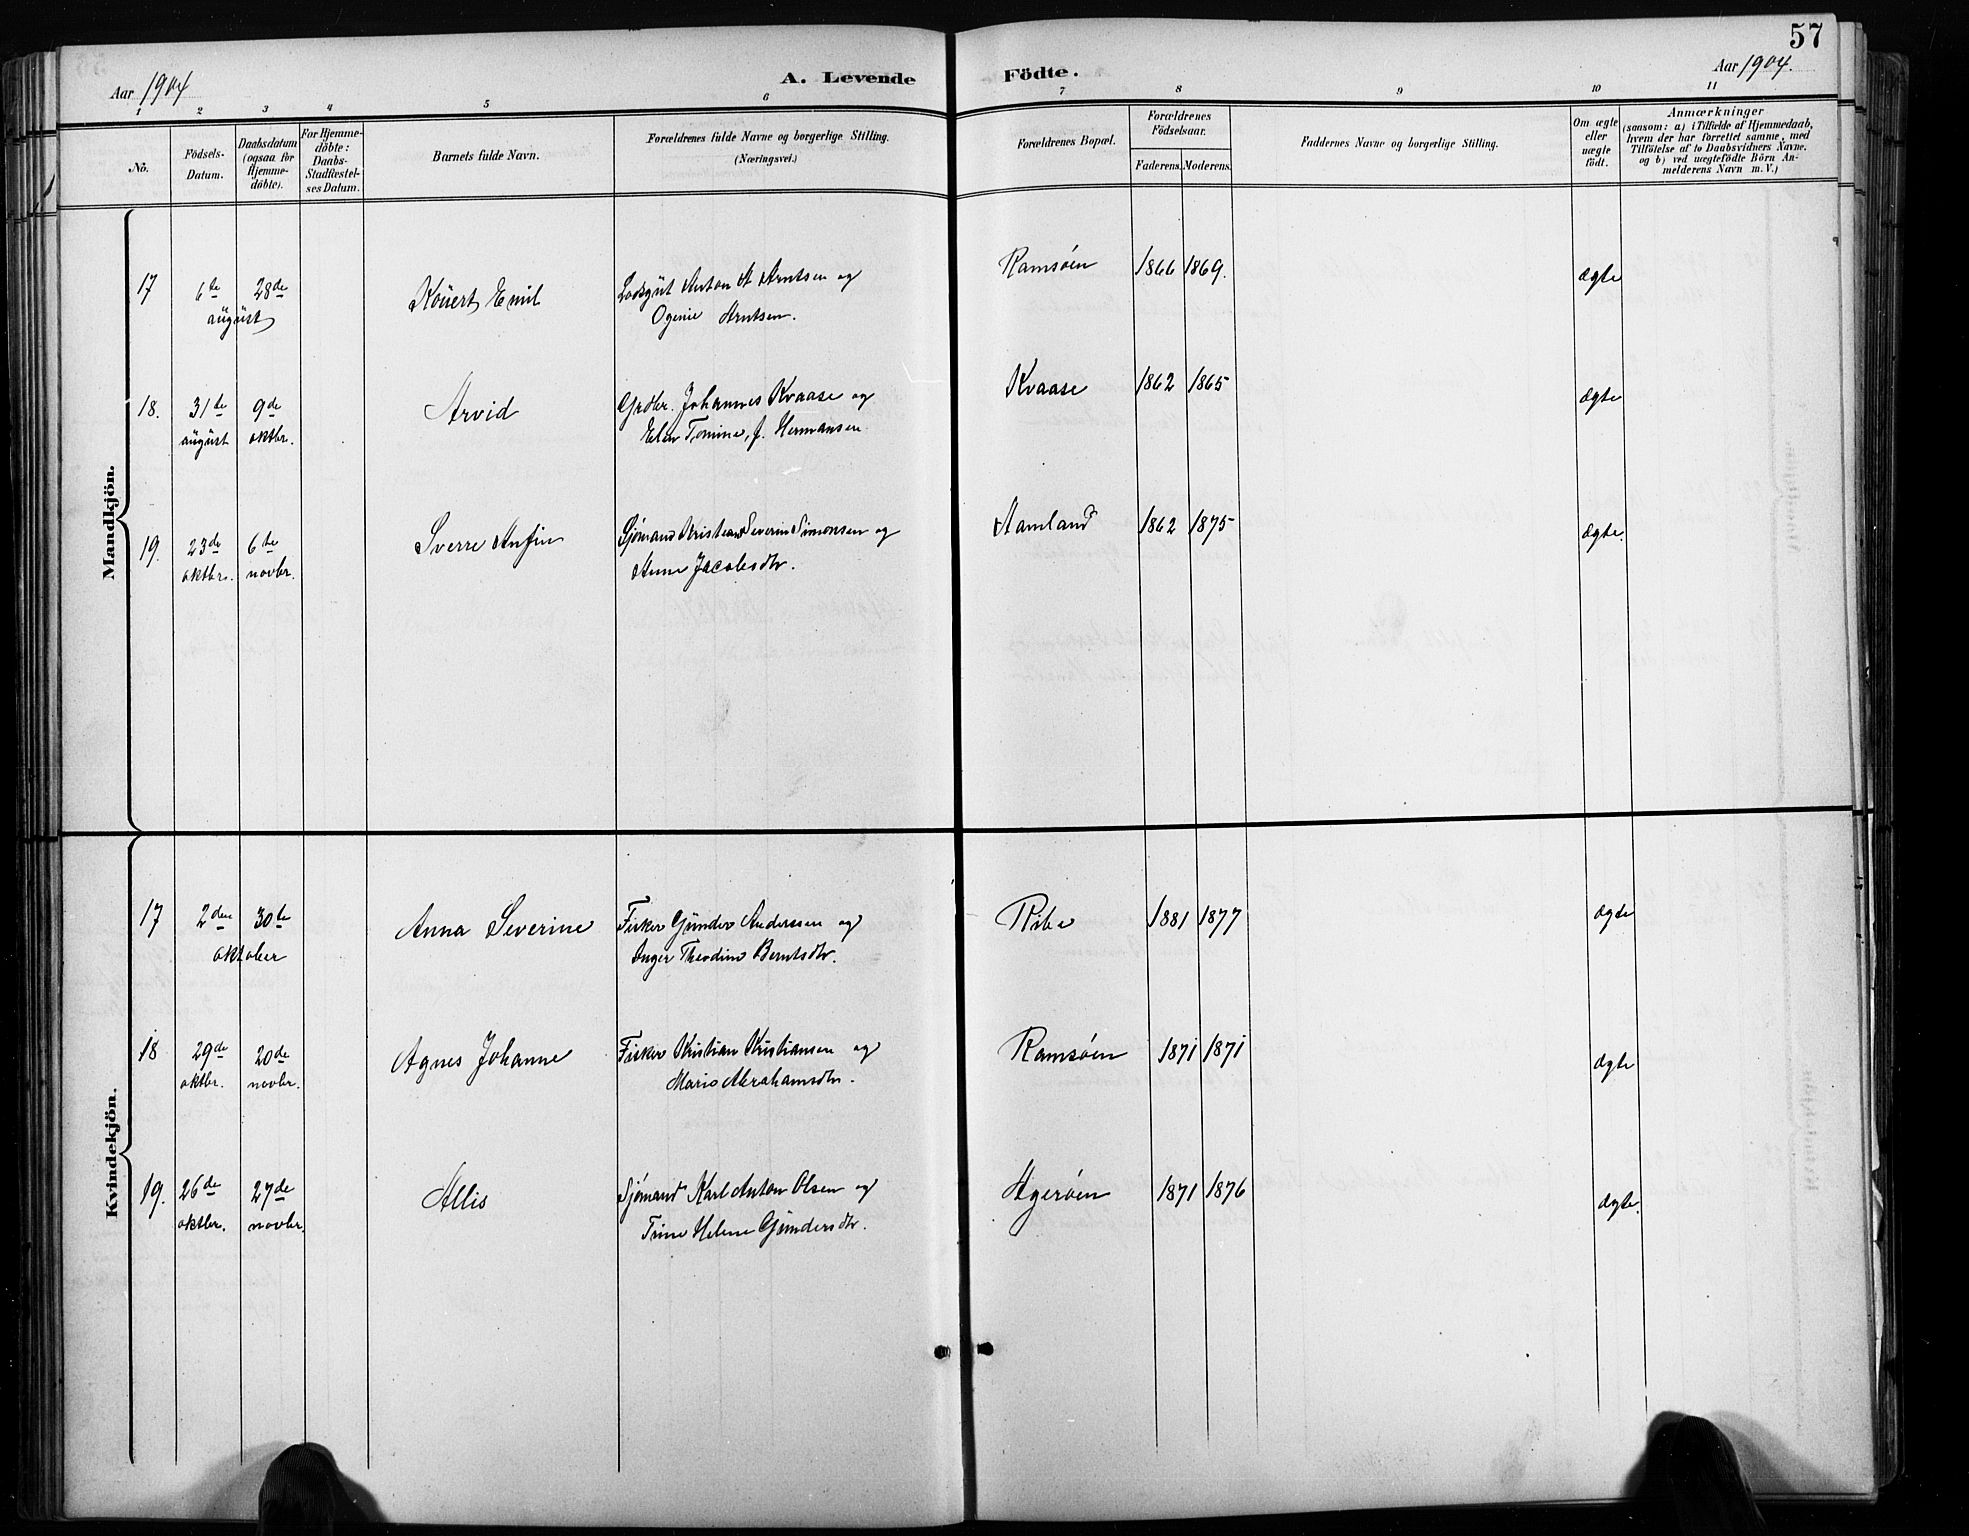 57
Aar 1904
A. Levende Födte.
Aar 1904.
1 2 3 4 5 6 7 8 9 10 11
No.
Födsels-
Datum.
Daabsdatum
(ogsaa for
Hjemme-
döbte).
For Hjemme-
döbte:
Daabs-
Stadfæstel-
ses Datum.
Barnets fulde Navn.
Forældrenes fulde Navne og borgerlige Stilling.
(Næringsvei.)
Forældrenes Bopæl.
Forældrenes
Födselsaar.
Faderens. Moderens.
Faddernes Navne og borgerlige Stilling.
Om ægte
eller
uægte
født.
Anmærkninger
(saasom: a) i Tilfælde af Hjemmedaab,
hvem der har forrettet samme, med
Tilföielse af to Daabsvidners Navne.
og b) ved uægtefödte Börn An-
melderens Navn m. V.)
Mandkjön.
17 6te 28de Emil Anton A Arntsen og Ramsöen 1866 1869. ægte
august Ogenie Arntsen.
18. 31te 9de Arvid Grdbr. Johannes Kvaase og Kvaase 1862 1865 ægte
august oktbr. Elen Tomine, f. Hermansen
19. 23de 6te Sverre Anfin Sjømand Kristian Severin Simonsen og Aamland 1862 1875 ægte.
oktbr. novbr. Anne Jacobsdtr.
Kvindekjön.
17 2den 30te Anna Severine Fisker Gunder Anderssen og Ribe 1881 1877 ægte
oktober Inger Theodine Berntsdtr.
18 29de 20de Agnes Johanne Fisker Kristian Kristiansen og Ramsöen 1871 1871 ægte
oktbr. novbr. Marie Abrahamsdtr.
19. 26de 27de Allis Sjømand Karl Anton Olsen og Ageröen 1871 1876 ægte.
oktbr. novbr. Trine Helene Gundersdtr.